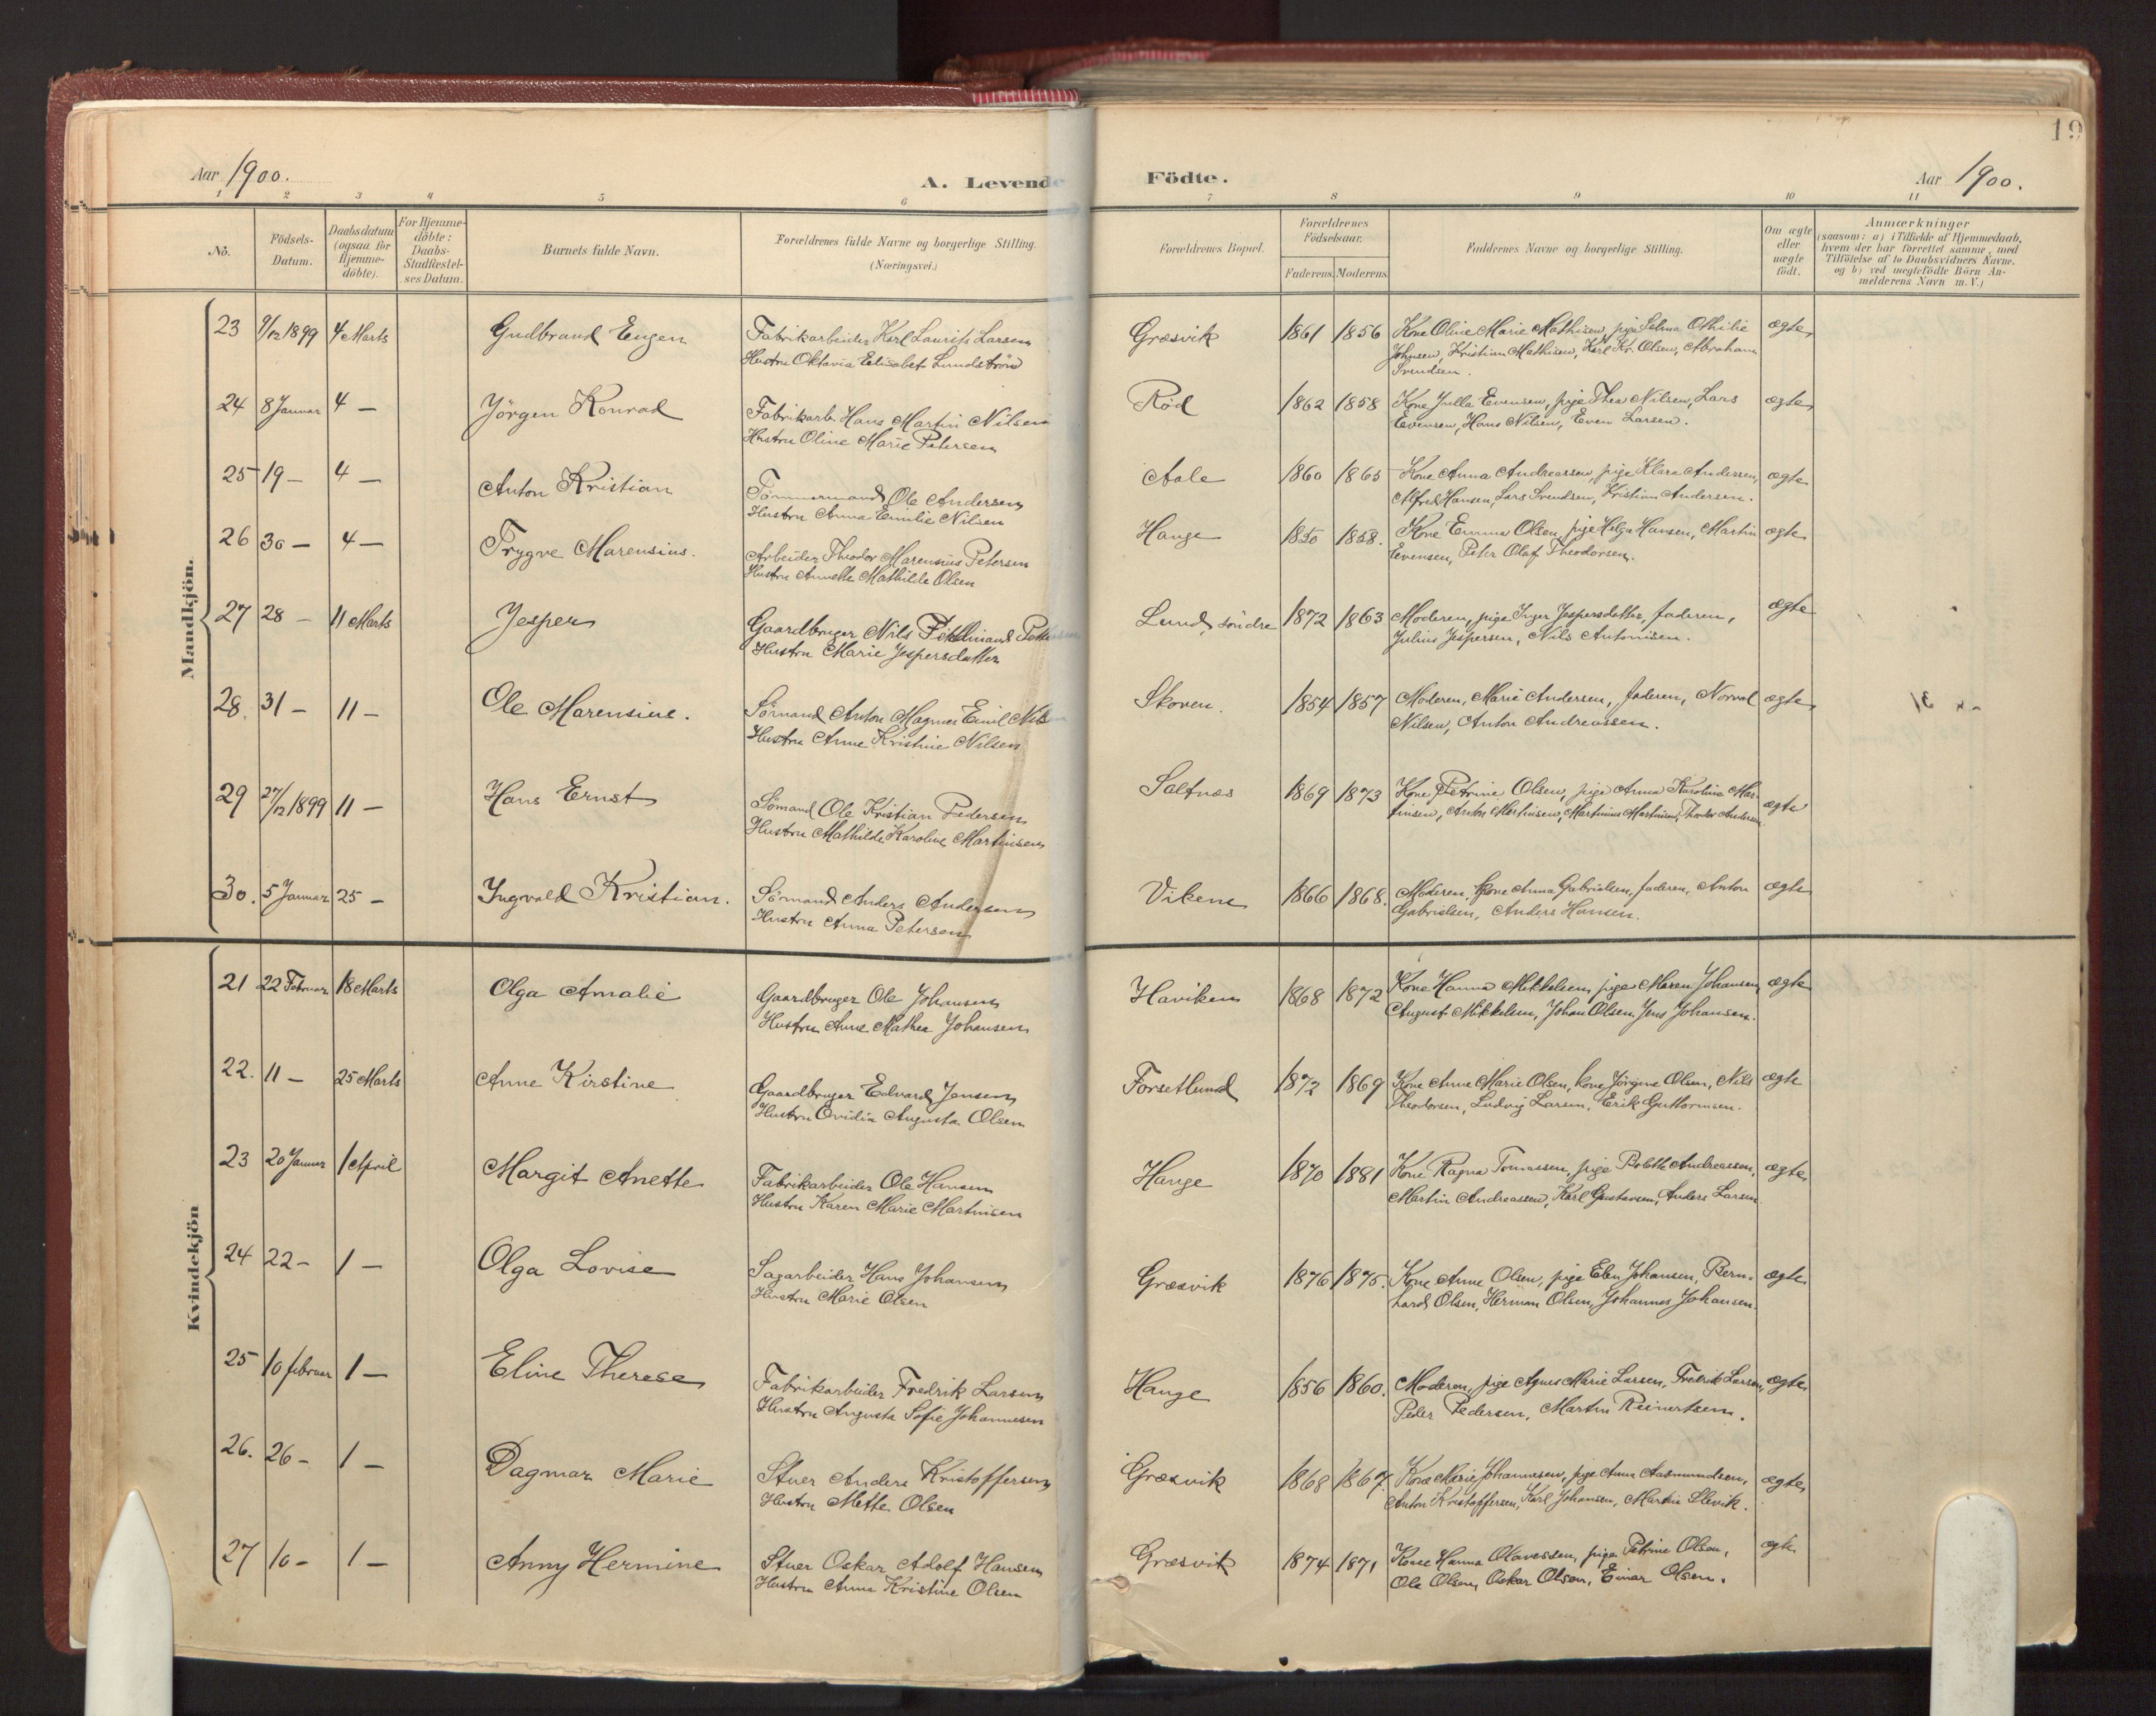 19
Aar 1900.
A. Levende Födte.
Aar 1900.
1 2 3 4 5 6 7 8 9 10 11
No.
Födsels-Datum.
Daabsdatum (ogsaa for Hjemme-döbte).
For Hjemme-döbte: Daabs-Stadfæstel-ses Datum.
Barnets fulde Navn.
Forældrenes fulde Navne og borgerlige Stilling. (Næringsvei.)
Forældrenes Bopæl.
Forældrenes Födselsaar.
Faderens. Moderens.
Faddernes Navne og borgerlige Stilling.
Om ægte eller uægte födt.
Anmærkninger
(saasom: a) i Tilfælde af Hjemmedaab,
hvem der har forrettet samme, med
Tilföielse af to Daabsvidners Navne,
og b) ved uegtefödte Börn An-
melderens Navn m. V.)
Mandkjön.
23 9/12 1899 4 Marts Gudbrand Eugen Fabrikarbeider Karl Laurits Larsen Græsvik 1861 1856 Kone Oline Marie Mathisen, pige Selma Othilie ægte
Hustru Oktavia Elisabet Lundström Johnsen, Kristian Mathisen, Karl Kr. Olsen, Abraham
Svendsen.
24 8 Januar 4 — Jörgen Konrad Fabrikarb. Hans Martin Nilsen Röd 1862 1858 Kone Julla Evensen, pige Thea Nilsen, Lars ægte
Hustru Oline Marie Petersen Evensen, Hans Nilsen, Even Larsen.
25 19 — 4 — Anton Kristian Tömmermand Ole Andersen Aale 1860 1865 Kone Anna Andreassen, pige Klara Andersen, ægte
Hustru Anna Emilie Nilsen Alfred Hansen, Lars Svendsen, Kristian Andersen.
26 30 — 4 — Trygve Marensius. Arbeider Theodor Marensius Petersen Hauge 1850 1858. Kone Emma Olsen, pige Helga Hansen, Martin ægte
Hustru Annette Mathilde Olsen Evensen, Peter Olaf Theodorsen.
27 28 — 11 Marts Jesper Gaardbruger Nils Ferdinand Lund, söndre 1872 1863 Moderen, pige Inger Jespersdatter, faderen, ægte
Hustru Marie Jespersdatter Julius Jespersen, Nils Antonisen.
28. 31 — 11 — Ole Marensius. Sömand Anton Magnus Emil Nils Skoven. 1854 1857 Moderen, Marie Andersen, faderen, Norval ægte
Hustru Anne Kristine Nilsen Nilsen, Anton Andreassen.
29 27/12 1899 11 — Hans Ernst Sömand Ole Kristian Pedersen Saltnæs 1869 1873 Kone Petrine Olsen, pige Anna Karoline Mar- ægte
Hustru Mathilde Karoline Martinisen tinsen, Anton Martinsen, Martinius Martinsen, Theodor Andersen
30. 5 Januar 25 — Ingvald Kristian. Sömand Anders Andersen Viken 1866 1868. Moderen, kone Anna Gabrielsen, faderen, Anton ægte
Hustru Anna Petersen Gabrielsen, Anders Hansen.
Kvindekjön
21 22 Februar 18 Marts Olga Amalie Gaardbruger Ole Johansen Haviken 1868 1872 Kone Hanna Mikkelsen, pige Maren Johansen, ægte
Hustru Anne Mathea Johansen August Mikkelsen, Johan Olsen, Jens Johansen.
22. 11 — 25 Marts Anne Kirstine Gaardbruger Edvard Jensen Forsetlund 1872 1869 Kone Anne Marie Olsen, kone Jörgine Olsen, Nils ægte
Hustru Ovidia Augusta Olsen Theodorsen, Ludvig Larsen, Erik Guttormsen.
23 20 Januar 1 April Margit Anette Fabrikarbeider Ole Hansen Hauge 1870 1881 Kone Ragna Tomassen, pige Bolette Andreassen, ægte
Hustru Karen Marie Martinisen Martin Andreassen, Karl Gustavsen, Anders Larsen
24 22 — 1 — Olga Lovise Sagarbeider Hans Johansen Græsvik 1876 1875. Kone Anne Olsen, pige Elen Johansen, Bern- ægte
Hustru Marie Olsen hard Olsen, Herman Olsen, Johannes Johansen.
25 10 februar 1 — Eline Therese Fabrikarbeider Fredrik Larsen Hauge 1856 1860. Moderen, pige Agnes Marie Larsen, Fredrik Larsen, ægte
Hustru Augusta Sofie Johannesen Peder Pedersen, Martin Reinertsen.
26. 26 — 1 — Dagmar Marie Stuer Anders Kristoffersen Græsvik 1868 1867. Kone Marie Johannesen, pige Anna Aasmundsen, ægte
Hustru Mette Olsen Anton Kristoffersen, Karl Johansen, Martin Slevik.
27 10 — 1 — Anny Hermine Stuer Oskar Adolf Hansen Græsvik 1874 1871 Kone Hanna Olavessen, pige Petrine Olsen, ægte
Hustru Anna Kristine Olsen Ole Olsen, Oskar Olsen, Einar Olsen.